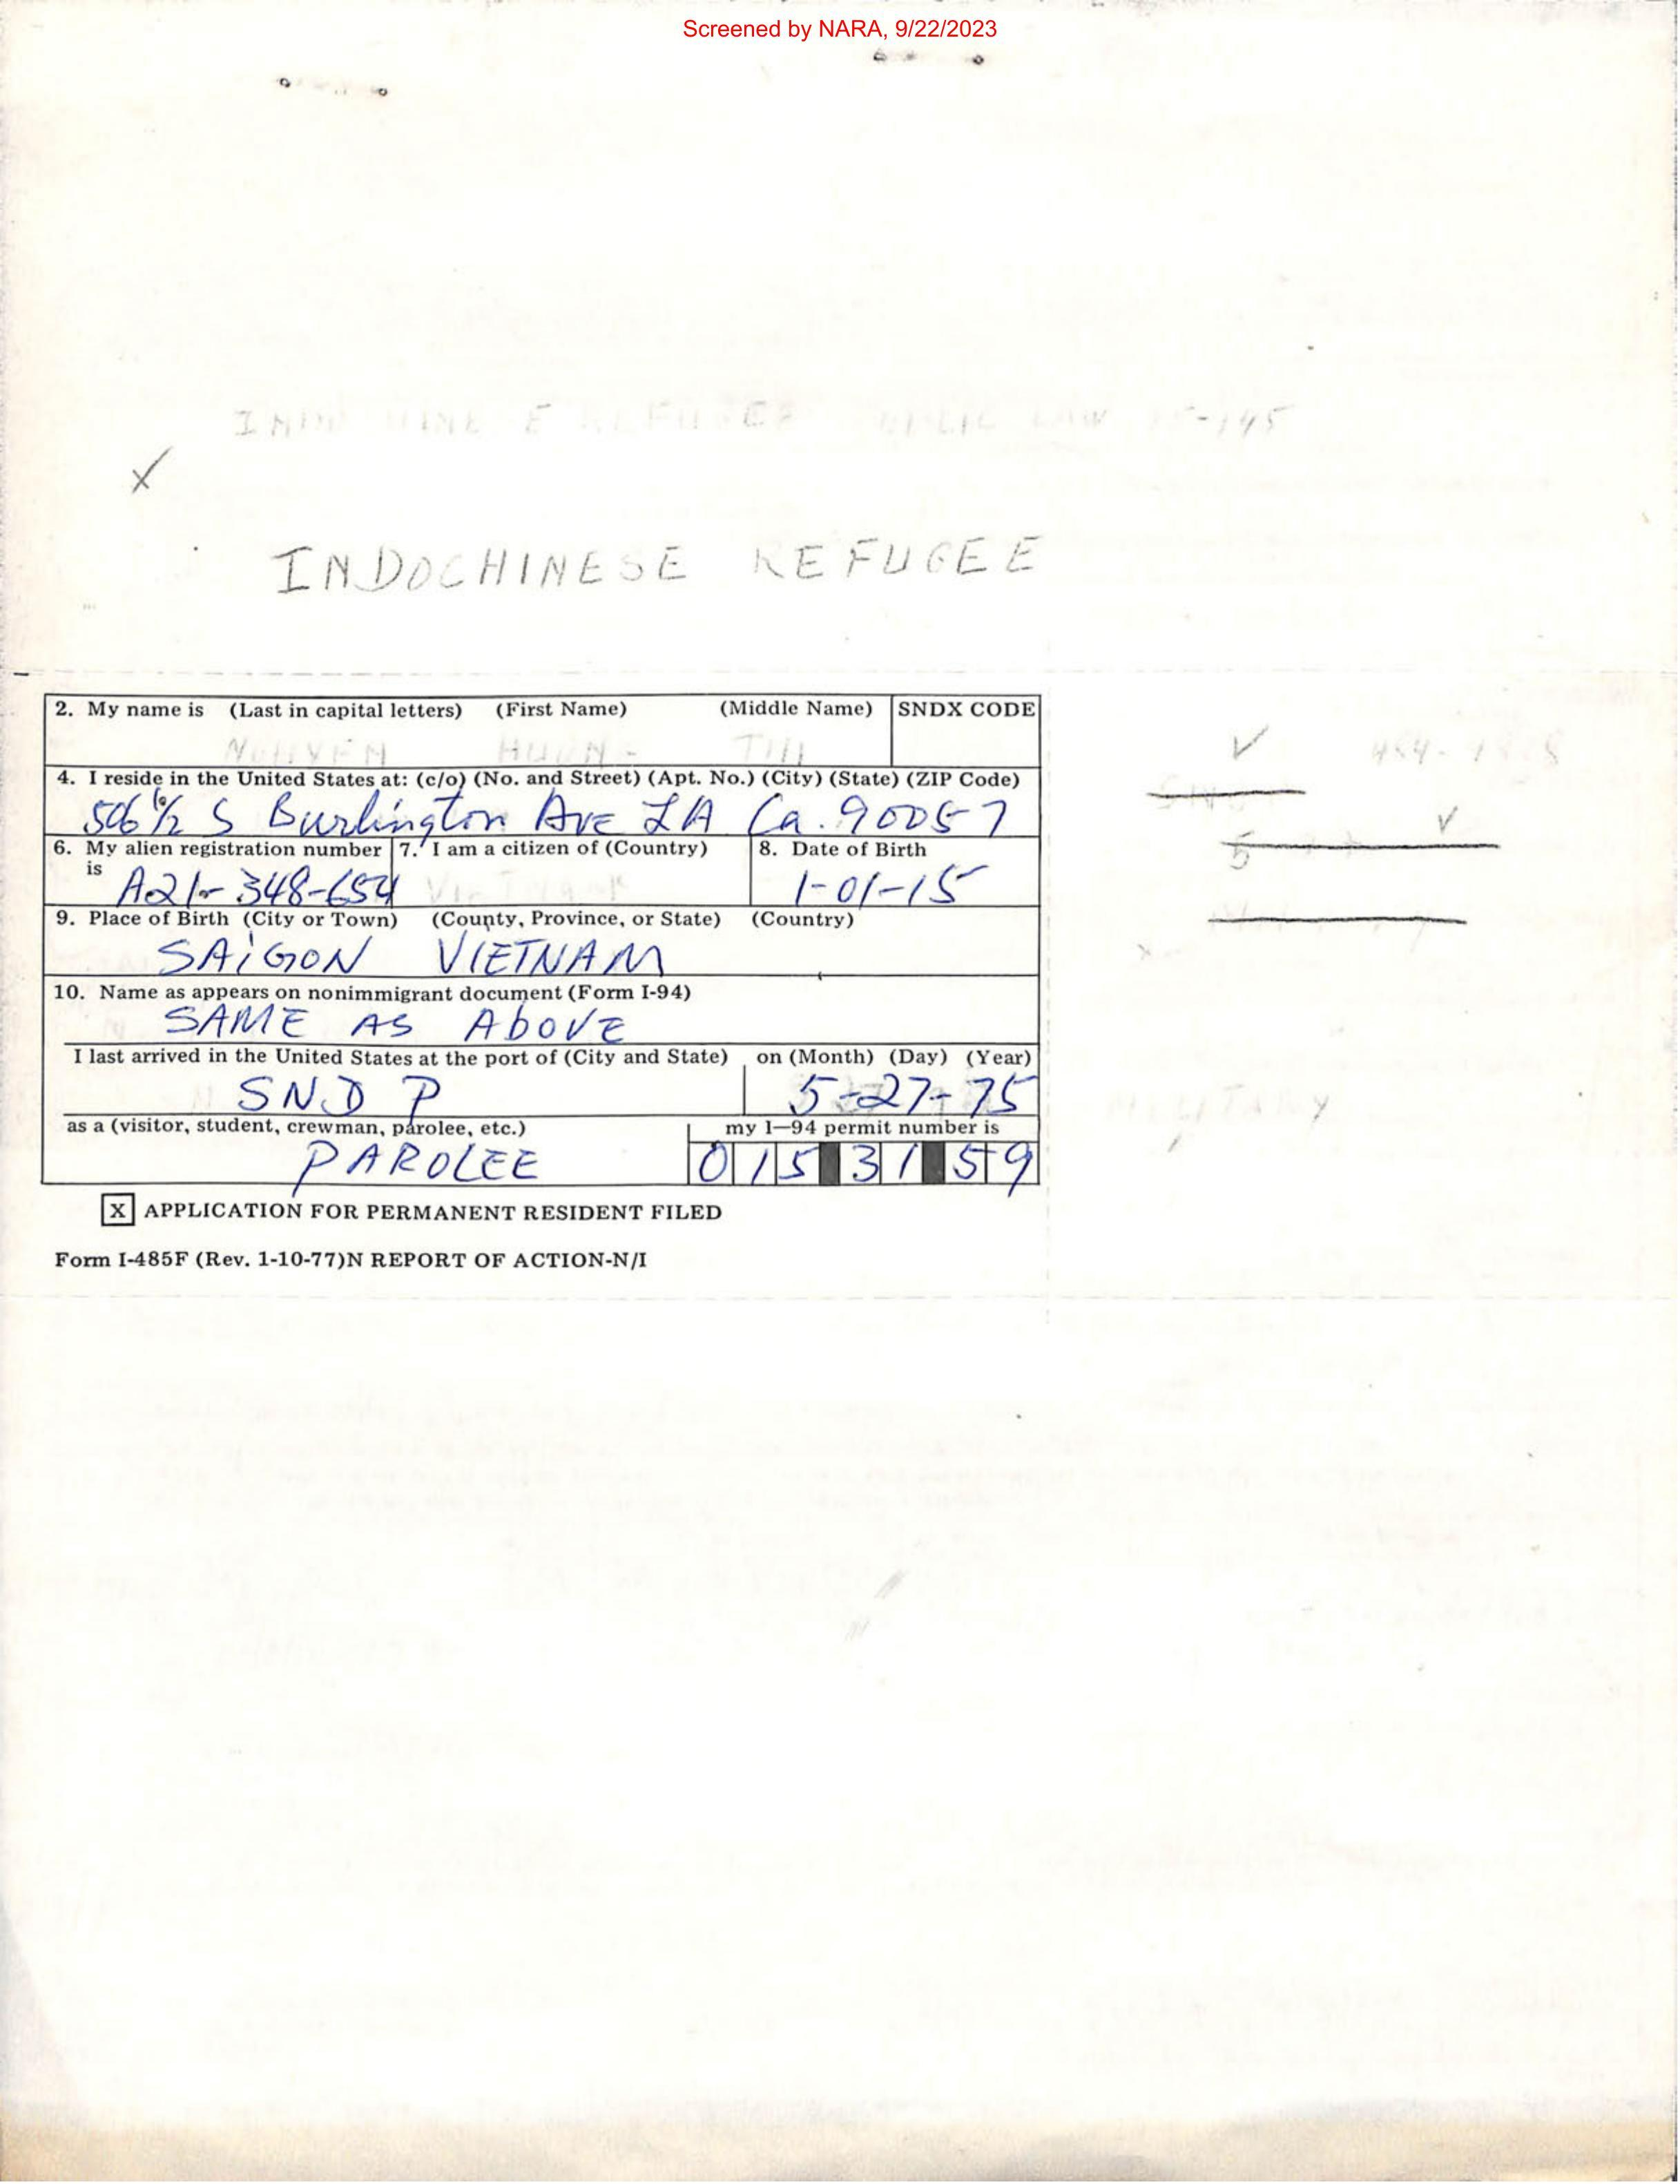 Screened by NARA, 9/22/2023
INDOCHINESE REFUGEE
2. My name is (Last in capital letters) (First Name) (Middle Name) SNDX CODE
NGUYEN THI
4. I reside in the United States at: (c/o) (No. and Street) (Apt. No.) (City) (State) (ZIP Code)
506 1/2 S Burlington Ave LA Ca. 90057
6. My alien registration number is 7. I am a citizen of (Country) 8. Date of Birth
A21-348-654 VIETNAM 1-01-15
9. Place of Birth (City or Town) (County, Province, or State) (Country)
SAiGON VIETNAM
10. Name as appears on nonimmigrant document (Form I-94)
SAME AS AbOVE
I last arrived in the United States at the port of (City and State) on (Month) (Day) (Year)
SND P 5-27-75
as a (visitor, student, crewman, parolee, etc.) my I-94 permit number is
PAROLEE 015 31 59
X APPLICATION FOR PERMANENT RESIDENT FILED
Form I-485F (Rev. 1-10-77)N REPORT OF ACTION-N/I